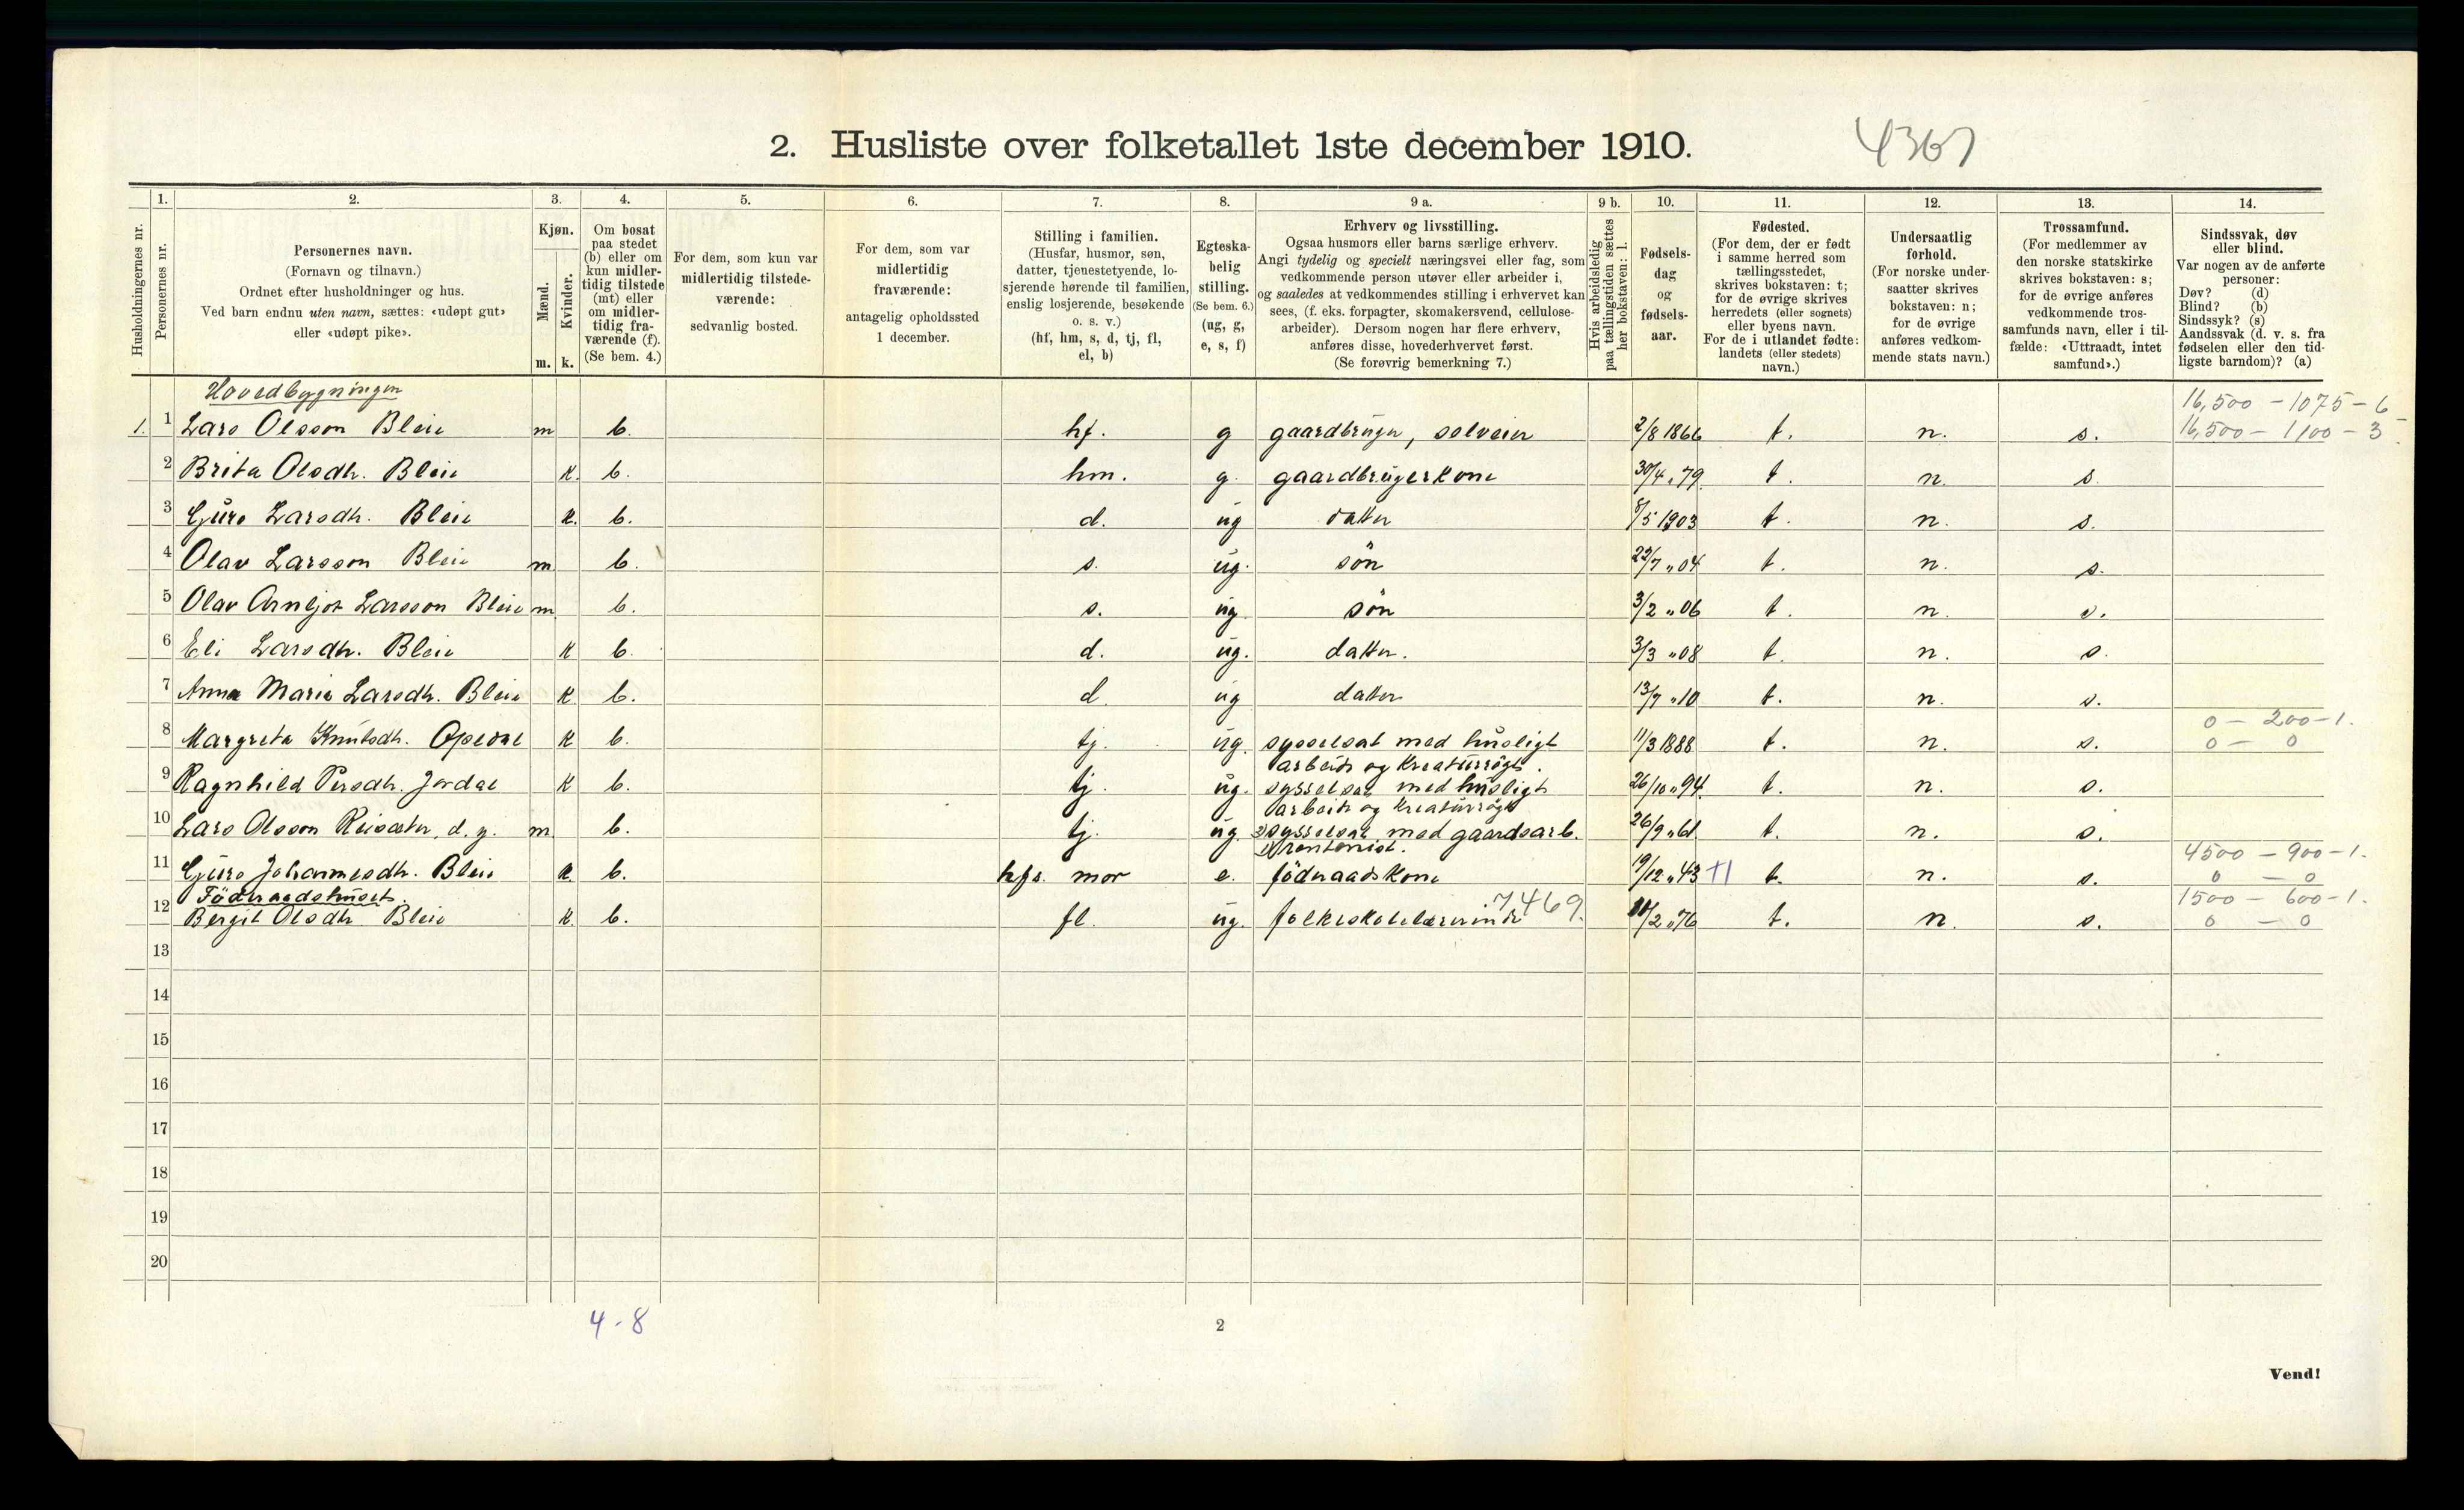 2. Husliste over folketallet 1ste december 1910.
4367
Husholdningernes nr.
1.
Personernes nr.
2.
Personernes navn.
(Fornavn og tilnavn.)
Ordnet efter husholdninger og hus.
Ved barn endnu uten navn, sættes: «udøpt gut»
eller «udøpt pike».
3.
Kjøn.
Mænd.
m.
Kvinder.
k.
4.
Om bosat
paa stedet
(b) eller om
kun midler-
tidig tilstede
(mt) eller
om midler-
tidig fra-
værende (f).
(Se bem. 4.)
5.
For dem, som kun var
midlertidig tilstede-
værende:
sedvanlig bosted.
6.
For dem, som var
midlertidig
fraværende:
antagelig opholdssted
1 december.
7.
Stilling i familien.
(Husfar, husmor, søn,
datter, tjenestetyende, lo-
sjerende hørende til familien,
enslig losjerende, besøkende
o. s. v.)
(hf, hm, s, d, tj, fl,
el, b)
8.
Egteska-
belig
stilling.
(Se bem. 6.)
(ug, g,
e, s, f)
9 a.
Erhverv og livsstilling.
Ogsaa husmors eller barns særlige erhverv.
Angi tydelig og specielt næringsvei eller fag, som
vedkommende person utøver eller arbeider i,
og saaledes at vedkommendes stilling i erhvervet kan
sees, (f. eks. forpagter, skomakersvend, cellulose-
arbeider). Dersom nogen har flere erhverv,
anføres disse, hovederhvervet først.
(Se forøvrig bemerkning 7.)
9 b.
Hvis arbeidsledig
paa tællingstiden sættes
her bokstaven: l.
10.
Fødsels-
dag
og
fødsels-
aar.
11.
Fødested.
(For dem, der er født
i samme herred som
tællingsstedet,
skrives bokstaven: t;
for de øvrige skrives
herredets (eller sognets)
eller byens navn.
For de i utlandet fødte:
landets (eller stedets)
navn.)
12.
Undersaatlig
forhold.
(For norske under-
saatter skrives
bokstaven: n;
for de øvrige
anføres vedkom-
mende stats navn.)
13.
Trossamfund.
(For medlemmer av
den norske statskirke
skrives bokstaven: s;
for de øvrige anføres
vedkommende tros-
samfunds navn, eller i til-
fælde: «Uttraadt, intet
samfund».)
14.
Sindssvak, døv
eller blind.
Var nogen av de anførte
personer:
Døv? (d)
Blind? (b)
Sindssyk? (s)
Aandssvak (d. v. s. fra
fødselen eller den tid-
ligste barndom)? (a)
Hovedbygningen
16,500 - 1075 - 6
1. 1 Lars Olsson Bleie m b. hf. g gaardbruger, selveier 2/8 1866 t. n. s. 16,500 - 1100 - 3
2 Brita Olsdh. Bleie k. b. hm. g. gaardbrugerkone 30/4 „ 79. t. n. s.
3 Guro Larsdh. Bleie k. b. d. ug datter 8/5 1903 t. n. s.
4 Olav Larsson Bleie m b. s. ug. søn 22/7 „ 04 t. n. s.
5 Olav Arnljot Larsson Bleie m b. s. ug søn 3/2 „ 06 t. n. s.
6 Eli Larsdh. Bleie k b. d. ug. datter. 3/3 „ 08 t. n. s.
7 Anna Maria Larsdh. Bleie k b. d ug datter 13/7 „ 10 t. n. s.
0 - 200 - 1.
8 Margreta Knutsdh. Opedal k b. tj. ug. sysselsat med husligt 11/3 1888 t. n. s. 0 - 0
arbeide og kreaturrögt.
9 Ragnhild Persdh. Jordal k b. tj. ug. sysselsat med husligt 26/10 „ 94. t. n. s.
arbeide og kreaturrögt
10 Lars Olsson Reisæter, d. y. m b. tj. ug. 2) sysselsat med gaardsarb. 26/9 „ 61. t. n. s.
1) rentenist.
4500 - 900 - 1.
11 Guro Johannesdh. Bleie k. b. hfs. mor e. födraadskone 19/12 „ 43 t. n. s. 0 - 0
Födraadshuset.
7469.
1500 - 600 - 1.
12 Bergit Olsdh Bleie k. b. fl. ug. folkeskolelærerinde 11/2 „ 76 t. n. s. 0 - 0
13
14
15
16
17
18
19
20
4 - 8
2
Vend!